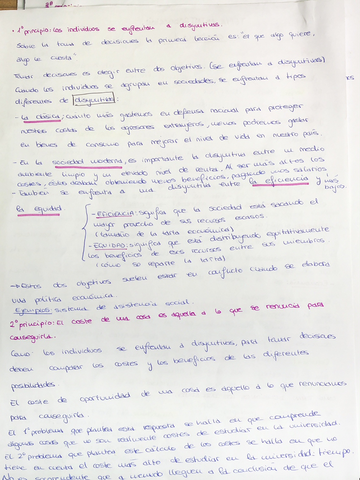 • 1º principio: los individuos se enfrentan a disyuntivas.
Sobre la toma de decisiones la primera lección es: "el que algo quiere,
algo le cuesta"
Tomar decisiones es elegir entre dos objetivos (se enfrentan a disyuntivas)
Cuando los individuos se agrupan en sociedades, se enfrentan a tipos
diferentes de disyuntivas.
- La clásica: cuanto más gastemos en defensa nacional para proteger
nuestras costas de los agresores extranjeros, menos podremos gastar
en bienes de consumo para mejorar el nivel de vida en nuestro país.
- En la sociedad moderna, es importante la disyuntiva entre un medio
ambiente limpio y un elevado nivel de renta. Al ser más altos los
costes, estos acaban obteniendo menos beneficios, pagando más salarios
- También se enfrenta a una disyuntiva entre la eficiencia y
la equidad
- EFICIENCIA: significa que la sociedad está sacando el
mayor provecho de sus recursos escasos.
(tamaño de la tarta económica)
- EQUIDAD: significa que está distribuyendo equitativamente
los beneficios de esos recursos entre sus miembros
(cómo se reparte la tarta)
→ Estos dos objetivos suelen estar en conflicto cuando se elabora
una política económica.
Ejemplos: sistema de asistencia social.
2º principio: El coste de una cosa es aquello a lo que se renuncia para
conseguirla.
Como los individuos se enfrentan a disyuntivas, para tomar decisiones
deben comparar los costes y los beneficios de las diferentes
posibilidades
El coste de oportunidad de una cosa es aquello a lo que renunciamos
para conseguirla.
El 1º problema que plantea esta respuesta se halla en que comprende
algunas cosas que no son realmente costes de estudiar en la universidad.
El 2º problema que plantea este cálculo de los costes se halla en que no
tiene en cuenta el coste más alto de estudiar en la universidad: tiempo.
No es sorprendente que a menudo lleguen a la conclusión de que el